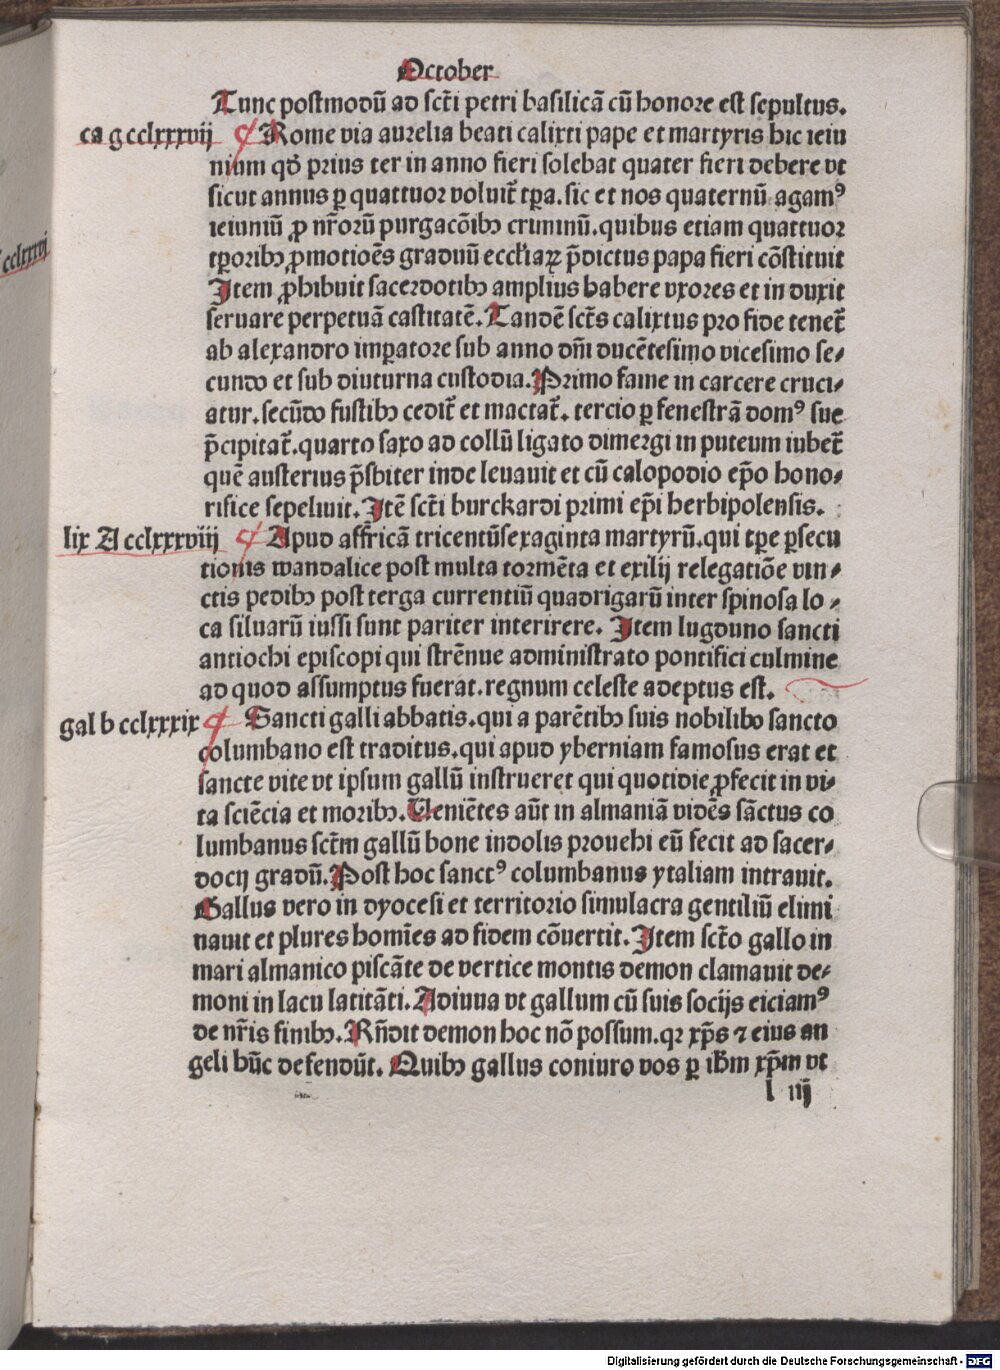 October
Tunc postmodū ad sct̄i petri basilicā cū honore est sepultus.
ca g cclxxxvij ¶ Rome via aurelia beati calixti pape et martyris hic ieiu
nium qd̄ prius ter in anno fieri solebat quater fieri debere vt
sicut annus ꝑ quattuor voluit᷑ tꝑa. sic et nos quaternū agamꝰ
ieiuniū ꝓ nr̄orū purgacōibꝫ criminū. quibus etiam quattuor
tꝑoribꝫ ꝓmotioēs graduū eccl̄iaꝝ p̄dictus papa fieri cōstituit
Item ꝓhibuit sacerdotibꝫ amplius habere vxores et in duxit
seruare perpetuā castitatē. Tandē sct̄s calixtus pro fide tenet᷑
ab alexandro imꝑatore sub anno dn̄i ducētesimo vicesimo se⸗
cundo et sub diuturna custodia. Primo fame in carcere cruci⸗
atur. secūdo fustibꝫ cedit᷑ et mactat᷑. tercio ꝑ fenestrā domꝰ sue
p̄cipitat᷑. quarto saxo ad collū ligato dimergi in puteum iubet᷑
quē austerius p̄sbiter inde leuauit et cū calopodio ep̄o hono⸗
rifice sepeliuit. Itē sct̄i burckardi primi ep̄i herbipolensis.
lix A cclxxxviij ¶ Apud affricā tricentūsexaginta martyrū. qui tꝑe ꝑsecu
tionis wandalice post multa tormēta et exilij relegatiōe vin⸗
ctis pedibꝫ post terga currentiū quadrigarū inter spinosa lo⸗
ca siluarū iussi sunt pariter interirere. Item lugduno sancti
antiochi episcopi qui strēnue administrato pontifici culmine
ad quod assumptus fuerat. regnum celeste adeptus est.
gal b cclxxxix ¶ Sancti galli abbatis. qui a parētibꝫ suis nobilibꝫ sancto
columbano est traditus. qui apud yberniam famosus erat et
sancte vite vt ipsum gallū instrueret qui quotidie ꝓfecit in vi⸗
ta sciēcia et moribꝫ. Veniētes aūt in almaniā vidēs sāctus co
lumbanus sct̄m gallū bone indolis prouehi eū fecit ad sacer⸗
docij gradū. Post hoc sanctꝰ columbanus ytaliam intrauit.
Gallus vero in dyocesi et territorio simulacra gentiliū elimi
nauit et plures homīes ad fidem cōuertit. Item sct̄o gallo in
mari almanico piscāte de vertice montis demon clamauit de⸗
moni in lacu latitāti. Adiuua vt gallum cū suis socijs eiciamꝰ
de nr̄is finibꝫ. Rn̄dit demon hoc nō possum. qꝛ xp̄s ⁊ eius an
geli hūc defendūt. Quibꝫ gallus coniuro vos ꝑ ih̄m xp̄m vt
l iij
cclxxxvi
Digitalisierung gefördert durch die Deutsche Forschungsgemeinschaft - DFG